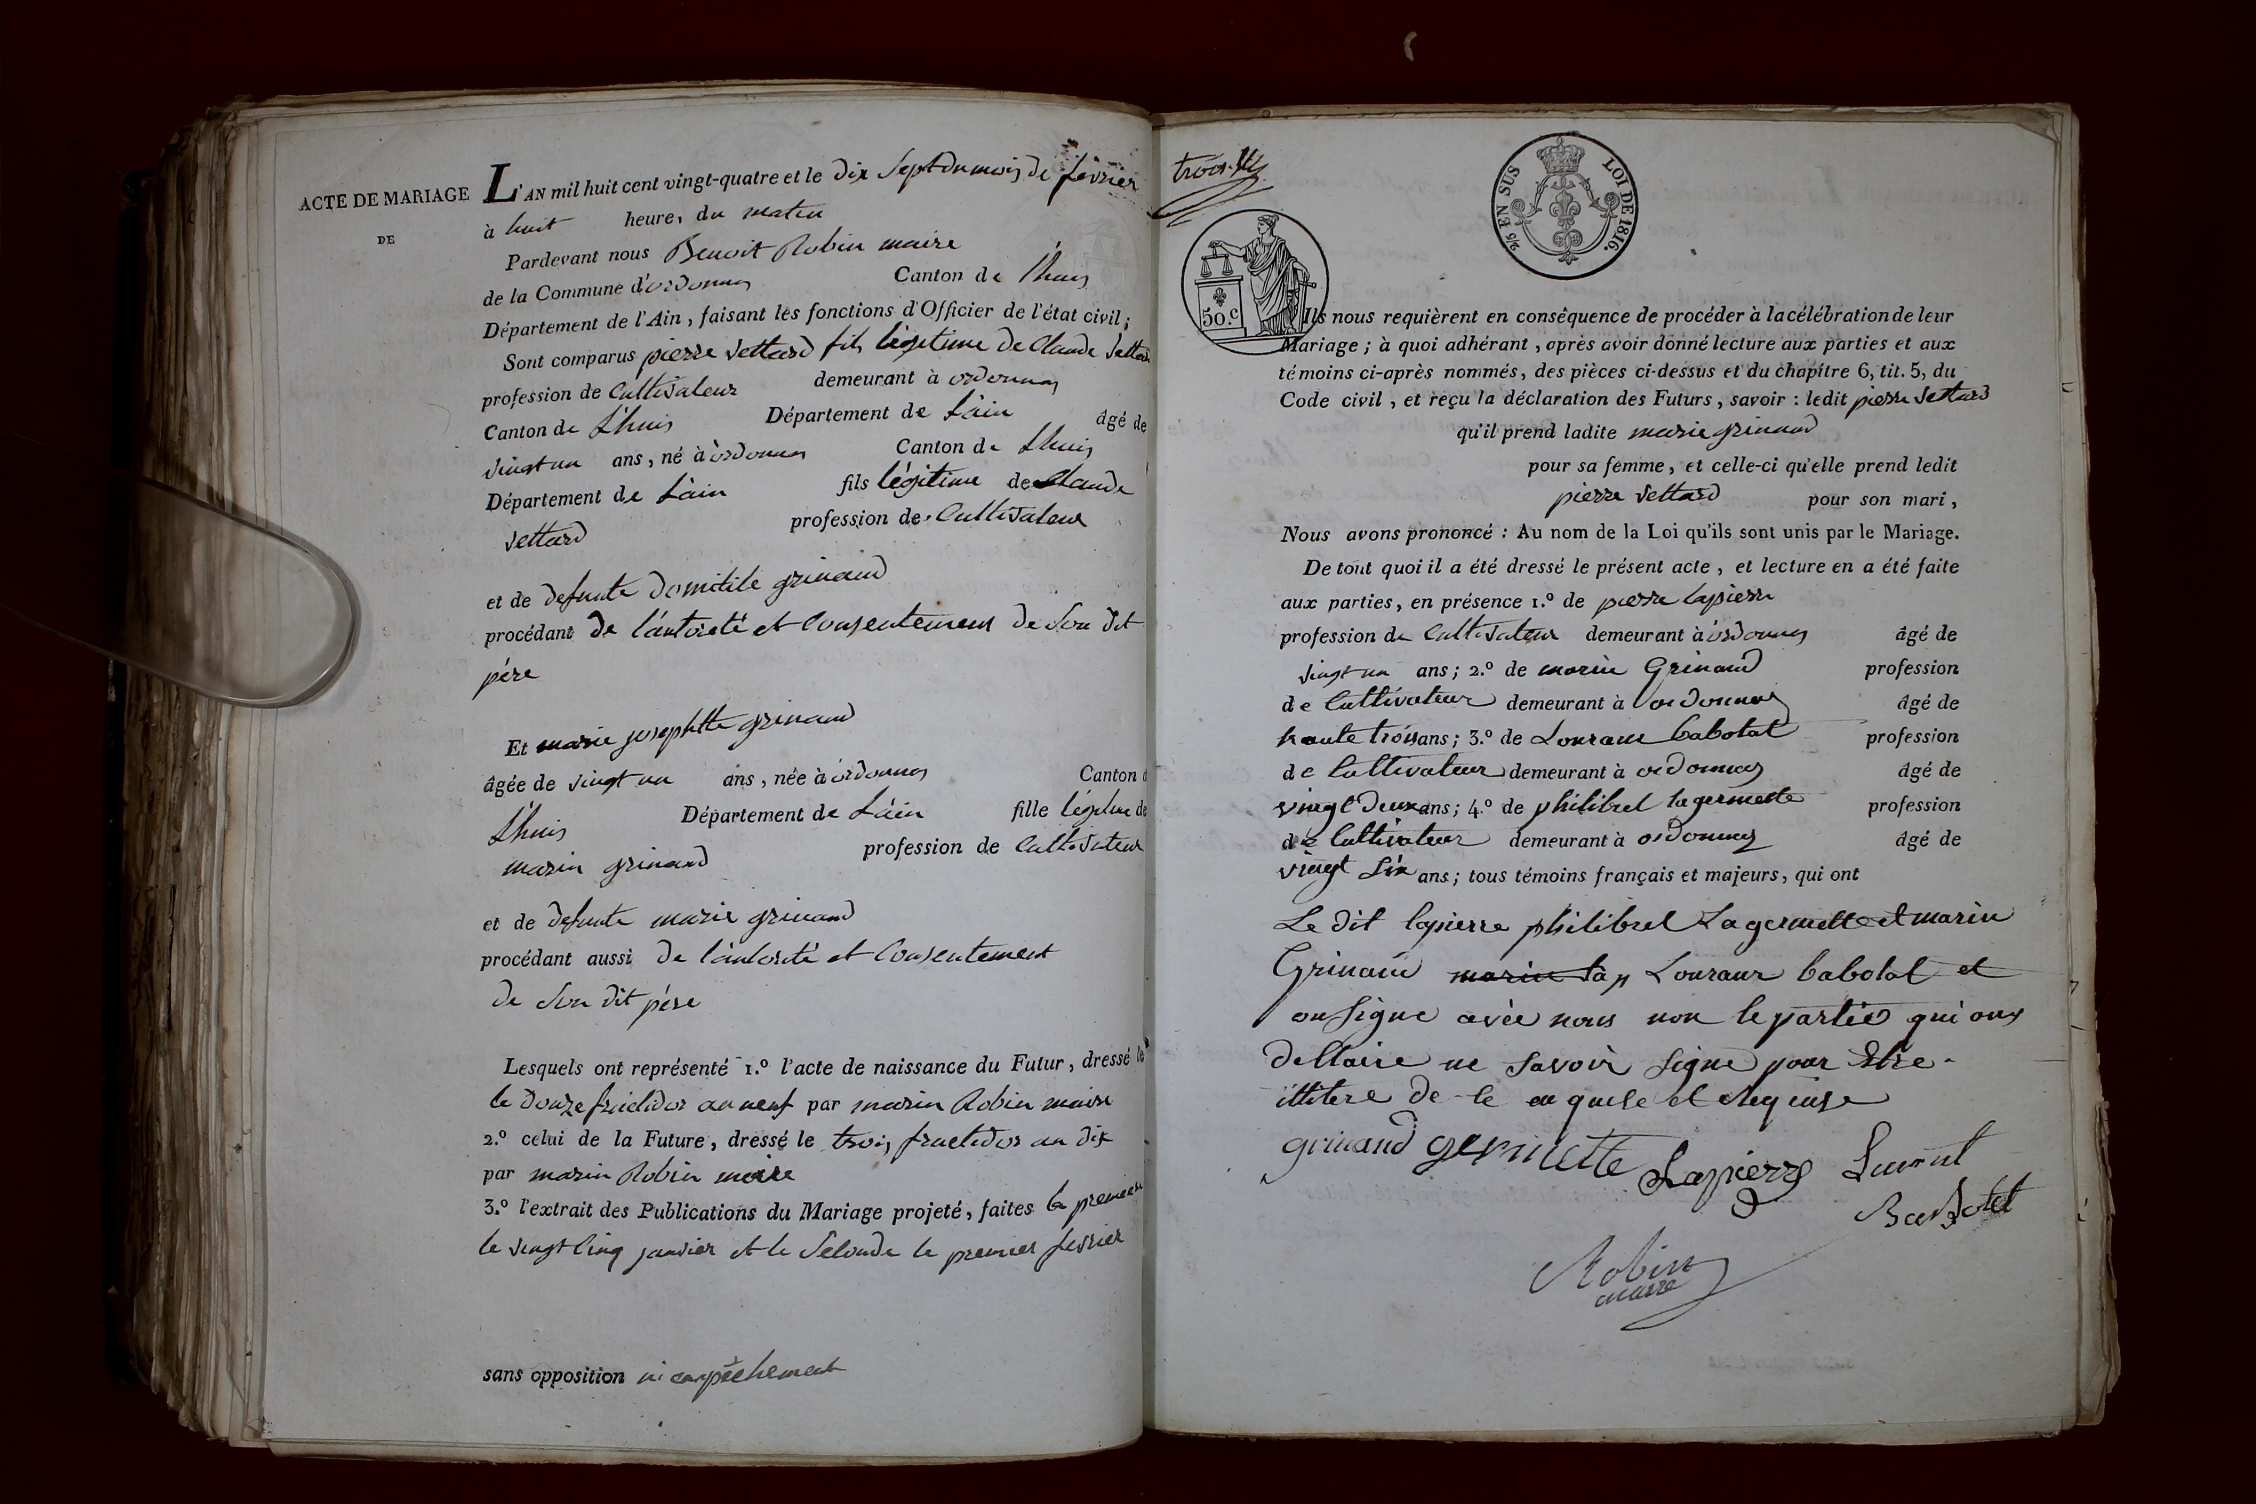 ACTE DE MARIAGE
DE
L'AN mil huit cent vingt-quatre et le dix Sept du mois de février
à huit heures du matin
Pardevant nous Benoit Robin maire
de la Commune d'ordonnas Canton de l'huis
Département de l'Ain, faisant les fonctions d'Officier de l'état civil;
Sont comparus pierre Vettard fils légitime de Claude Vettard
profession de Cultivateur demeurant à ordonnas
Canton de L'huis Département de L'ain âgé de
vingt un ans, né à ordonnas Canton de L'huis
Département de L'ain fils légitime de Claude
Vettard profession de Cultivateur
et de defunte Domitile grinand
procédant de l'autorité et Consentement de Son dit
père
Et marie josephtte grinand
âgée de vingt un ans, née à ordonnas Canton d
L'huis Département de L'ain fille légitime de
marin grinand profession de Cultivateur
et de defunte marie grinand
procédant aussi de l'autorité et Consentement
de Son dit père
Lesquels ont représenté 1.º l'acte de naissance du Futur, dressé le
le douze fructidor an neuf par marin Robin maire
2.º celui de la Future, dressé le trois fructidor an dix
par marin Robin maire
3.º l'extrait des Publications du Mariage projeté, faites la premiere
le vingt Cinq janvier et la Seconde le premier fevrier
sans opposition ni empêchement
trois
50.C
2/5 EN SUS LOI DE 1816.
Ils nous requièrent en conséquence de procéder à la célébration de leur
Mariage; à quoi adhérant, après avoir donné lecture aux parties et aux
témoins ci-après nommés, des pièces ci-dessus et du chapitre 6, tit. 5, du
Code civil, et reçu la déclaration des Futurs, savoir : ledit pierre Vettard
qu'il prend ladite marie grinand
pour sa femme, et celle-ci qu'elle prend ledit
pierre Vettard pour son mari,
Nous avons prononcé : Au nom de la Loi qu'ils sont unis par le Mariage.
De tout quoi il a été dressé le présent acte, et lecture en a été faite
aux parties, en présence 1.º de pierre lapierre
profession de Cultivateur demeurant à ordonnas âgé de
vingt un ans; 2.º de marin Grinand profession
de Cultivateur demeurant à ordonnas âgé de
trante trois ans; 3.º de Louraur babolat profession
de Cultivateur demeurant à ordonnas âgé de
vingt deux ans; 4.º de philibrel lagermette profession
de Cultivateur demeurant à ordonnas âgé de
vingt Six ans; tous témoins français et majeurs, qui ont
Le dit lapierre philibrel Lagermette et marin
Grinand marin lap Louraur babolat et
on Signe avée nous non le partie qui ons
dellaire ne Savoir Signe pour Etre
illitere de le enquise et requise
grinand germette Lapierre Laurent
Barbolet
Robin
maire